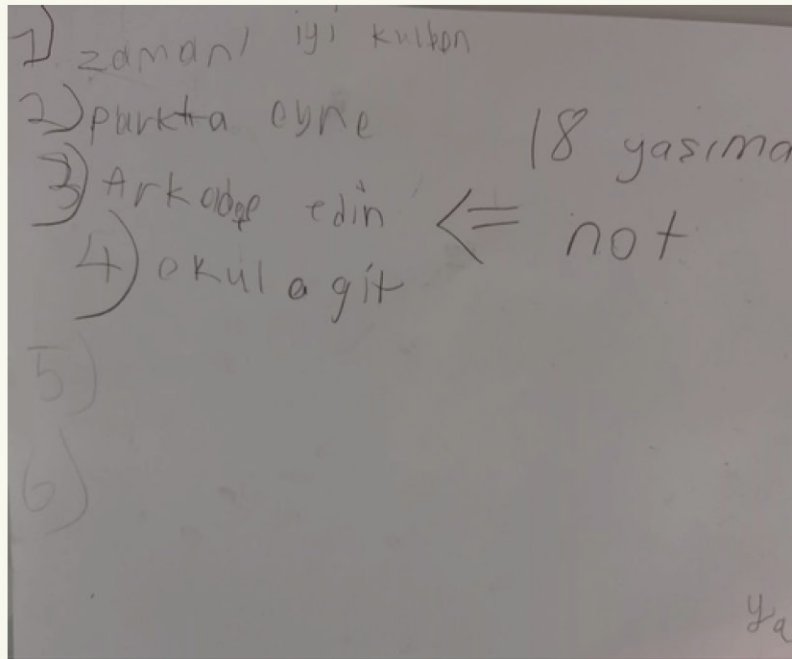 1) zamanı iyi kulbon
2) parkta oyne
3) Arkadaşe edin
4) okula git
<= 18 yasıma
not
5)
6)
ya